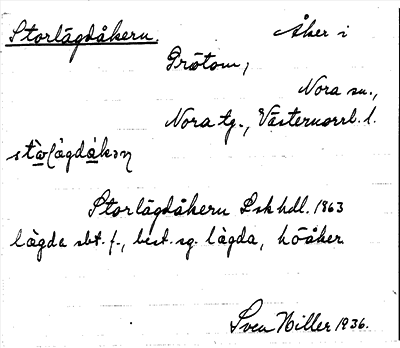 Storlägdåkern. Åker i
Grötom,
Nora sn.,
Nora tg., Västernorrl. l.
Storlägdåkern Lskhdl. 1863
lägda sbt. f., best. sg. lägda, höåker
Sven Hiller 1936.